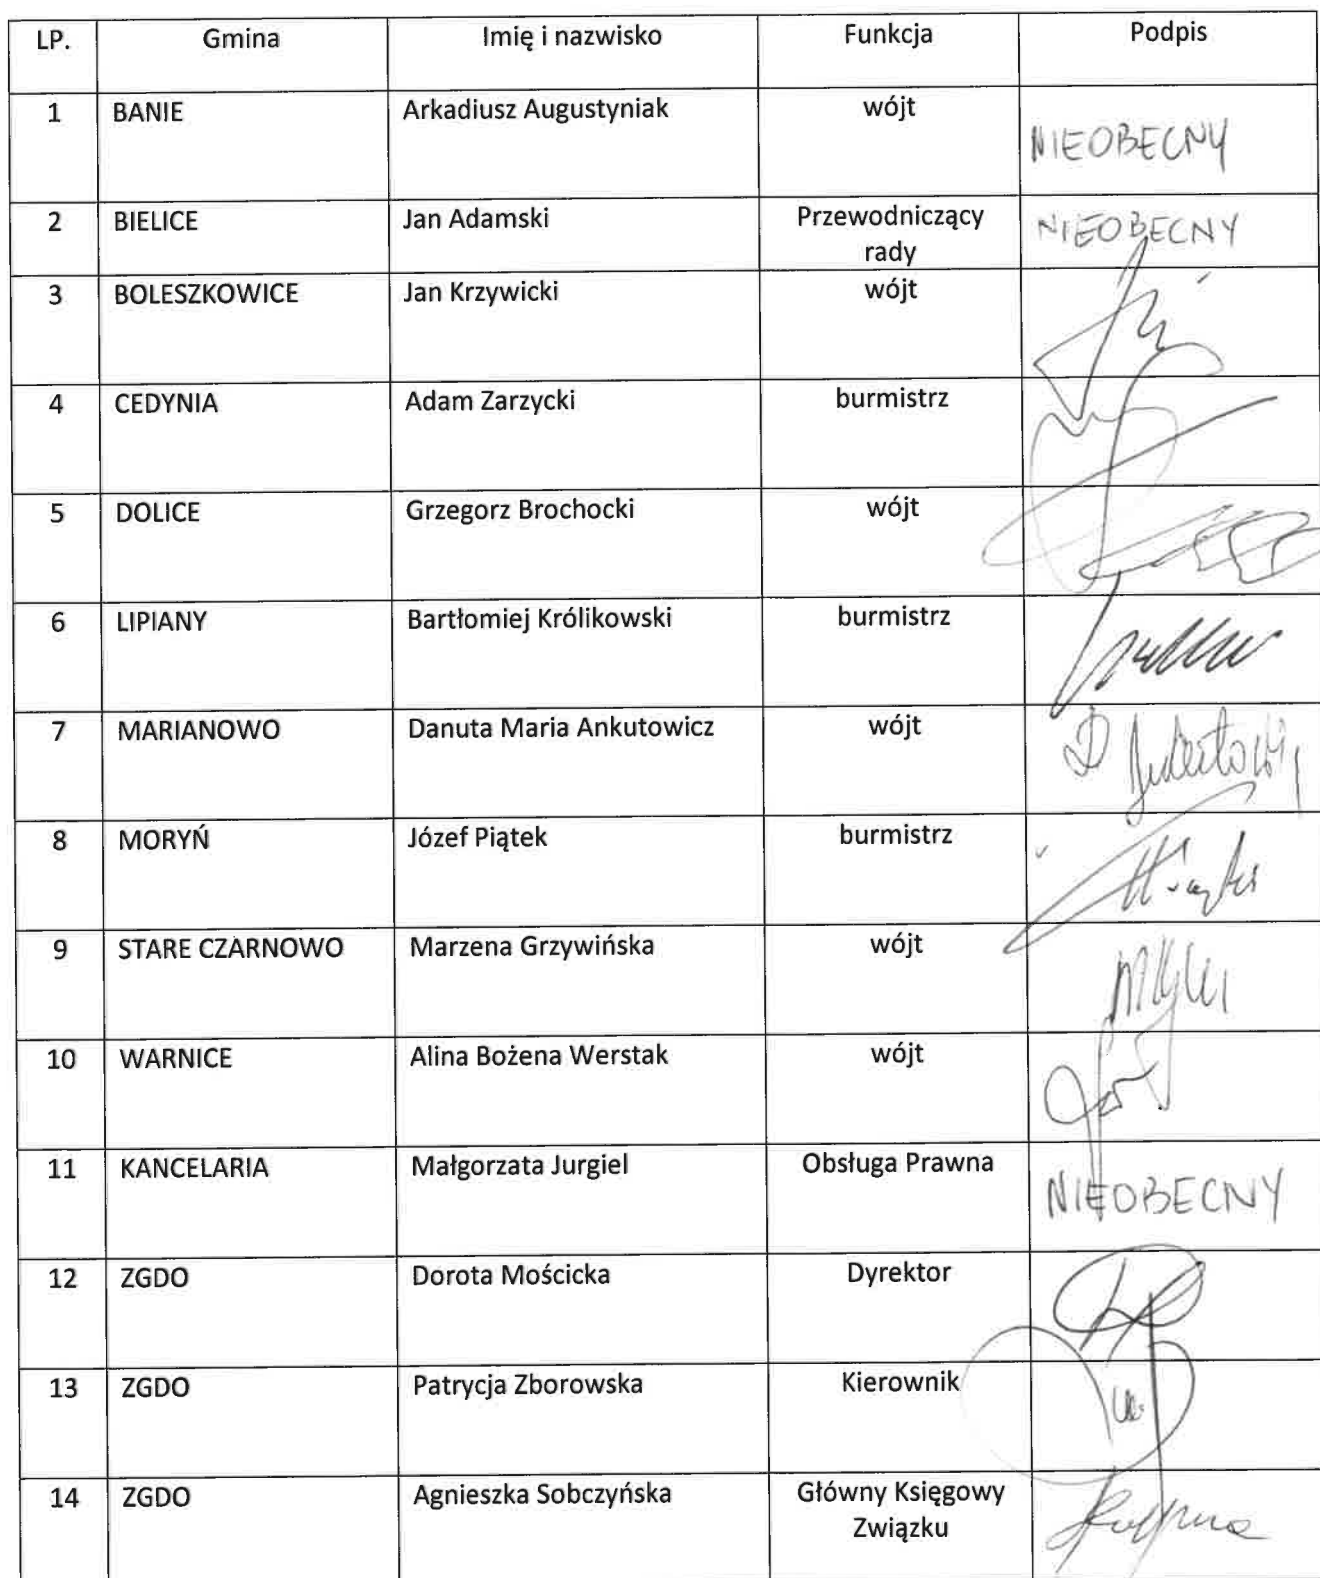 LP. Gmina Imię i nazwisko Funkcja Podpis
1 BANIE Arkadiusz Augustyniak wójt NIEOBECNY
2 BIELICE Jan Adamski Przewodniczący rady NIEOBECNY
3 BOLESZKOWICE Jan Krzywicki wójt
4 CEDYNIA Adam Zarzycki burmistrz
5 DOLICE Grzegorz Brochocki wójt
6 LIPIANY Bartłomiej Królikowski burmistrz
7 MARIANOWO Danuta Maria Ankutowicz wójt
8 MORYŃ Józef Piątek burmistrz
9 STARE CZARNOWO Marzena Grzywińska wójt
10 WARNICE Alina Bożena Werstak wójt
11 KANCELARIA Małgorzata Jurgiel Obsługa Prawna NIEOBECNY
12 ZGDO Dorota Mościcka Dyrektor
13 ZGDO Patrycja Zborowska Kierownik
14 ZGDO Agnieszka Sobczyńska Główny Księgowy
Związku